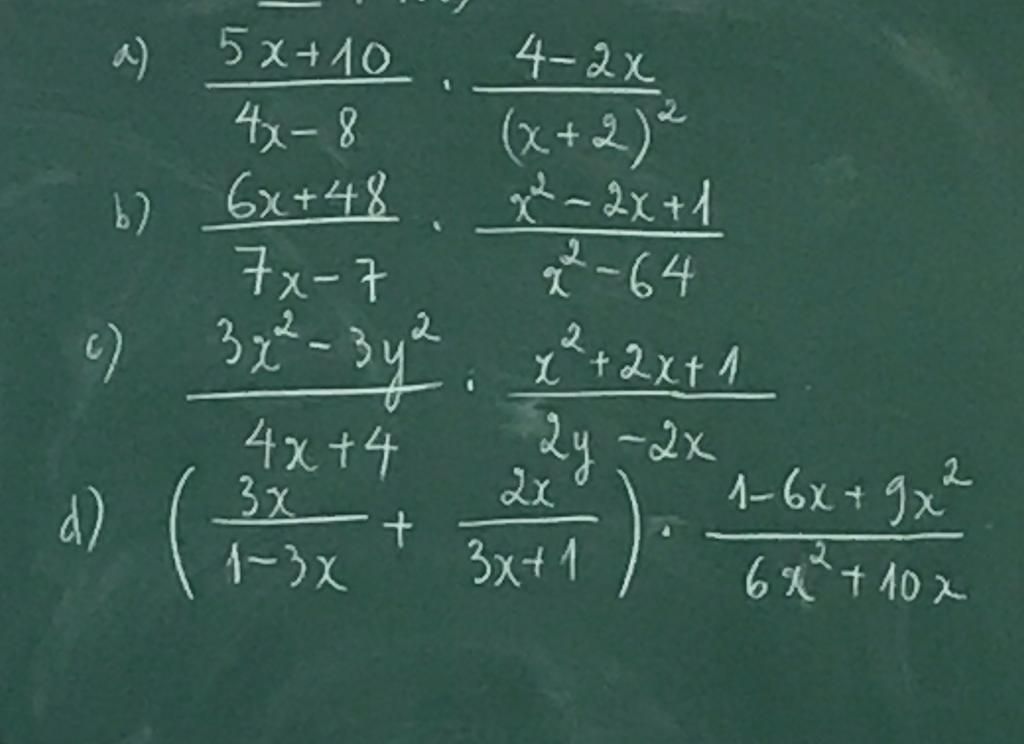 a) (5x+10)/(4x-8) · (4-2x)/(x+2)²
b) (6x+48)/(7x-7) · (x²-2x+1)/(x²-64)
c) (3x²-3y²)/(4x+4) · (x²+2x+1)/(2y-2x)
d) (3x/(1-3x) + 2x/(3x+1)) · (1-6x+9x²)/(6x²+10x)